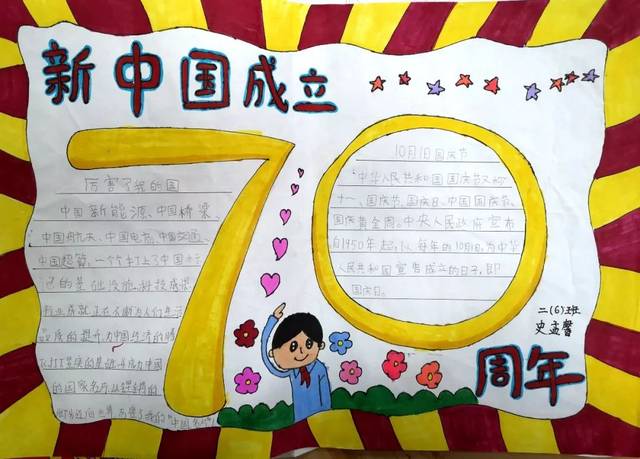 新中国成立
70
周年
厉害了我的国
中国新能源、中国桥梁、
中国航天、中国电商、中国交通、
中国超算，一个个打上了中国
的基础设施，科技成
就正在不断为人们生活
品质的提升，为中国经济的腾
的国家名片
10月1日国庆节
"中华人民共和国国庆节又称
十一、国庆节、国庆日、中国国庆节、
国庆黄金周。中央人民政府宣布
自1950年起，以每年的10月1日，为中华
人民共和国宣告成立的日子，即
国庆日。
二(6)班
史孟馨